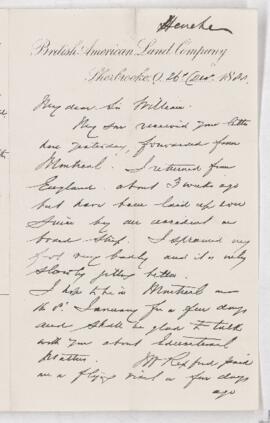 Heneker
British American Land Company
Sherbrooke, Q. 26th Decr. 18
My dear Sir William
My son received your letter
here yesterday, forwarded from
Montreal. I returned from
England about 3 weeks ago
but have been laid up ever
since by an accident on
board Ship. I sprained my
foot very badly and it is only
slowly getting better.
I hope to be in Montreal on
the 6th January for a few days
and shall be glad to talk
with you about Educational
Matters. Mr Rexford paid
me a flying visit a few days
ago